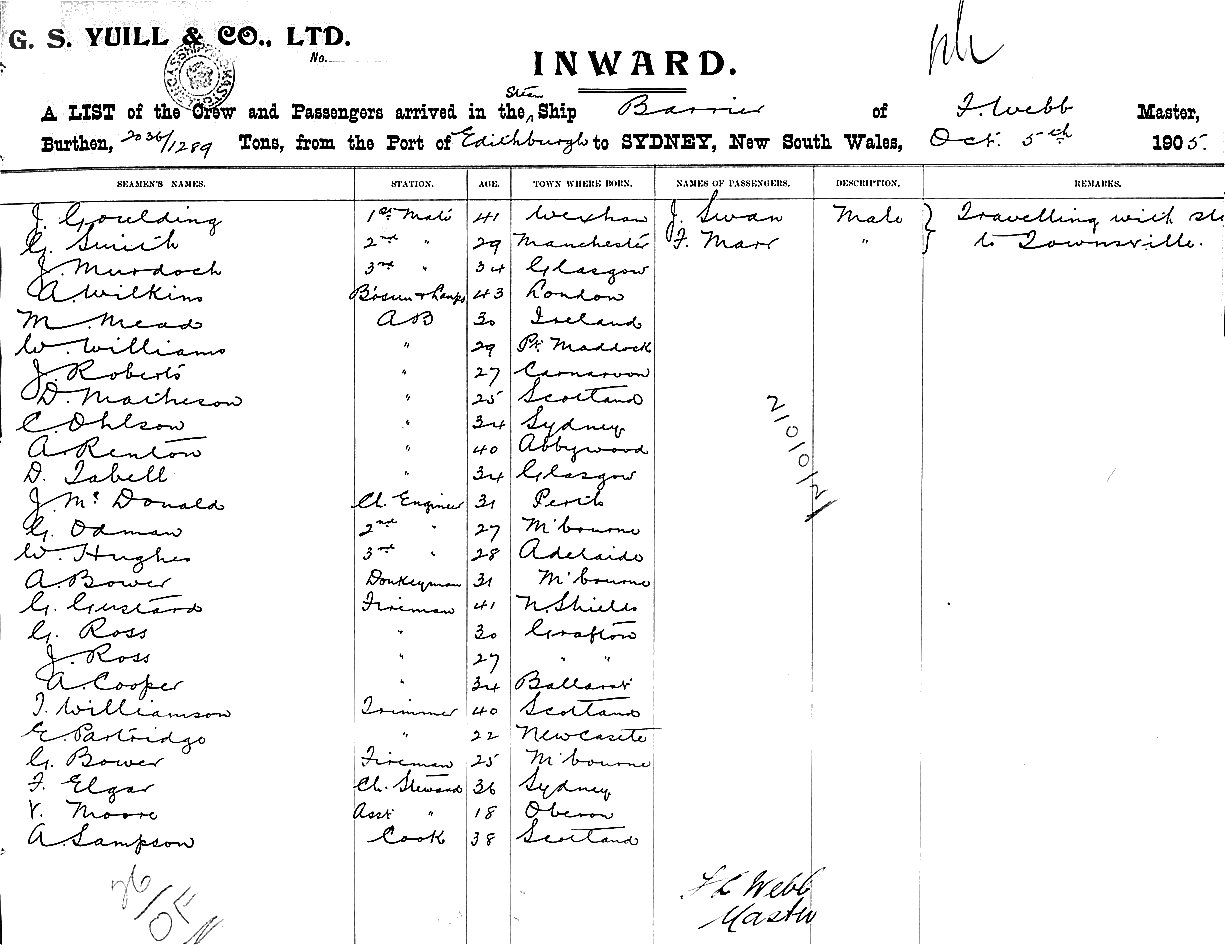 G. S. YUILL & CO., LTD.
No.
INWARD.
A LIST of the Crew and Passengers arrived in the Steam Ship Barrier of F. Webb Master,
Burthen, 2036/1289 Tons, from the Port of Edithburgh to SYDNEY, New South Wales, Oct. 5th 1905.
SEAMEN'S NAMES. STATION. AGE. TOWN WHERE BORN. NAMES OF PASSENGERS. DESCRIPTION. REMARKS.
J. Goulding 1st Mate 41 Wexham J. Swan Male } Travelling with
G. Smith 2nd " 29 Manchester F. Marr " } to Townsville.
J. Murdoch 3rd " 34 Glasgow
A. Wilkins Bosun & Lamps 43 London
M. Mead AB 30 Ireland
W. Williams " 29 Pt. Maddock
J. Roberts " 27 Carnarvon
D. Matheson " 25 Scotland
C. Ohlson " 34 Sydney
A. Renton " 40 Abbywood
D. Tabell " 34 Glasgow
J. McDonald Ch. Enginer 31 Perth
G. Odman 2nd " 27 M'bourne
W. Hughes 3rd " 28 Adelaide
A. Bower Donkeyman 31 M'bourne
G. Gustard Fireman 41 N. Shields
G. Ross " 30 Grafton
J. Ross " 27 " "
A. Cooper " 34 Ballarat
T. Williamson Trimmer 40 Scotland
E. Partridge " 22 Newcastle
G. Bower Fireman 25 M'bourne
F. Elgar Ch. Steward 36 Sydney
V. Moore Asst " 18 Oberon
A. Sampson Cook 38 Scotland
2/0/0/2/
Webb
Master